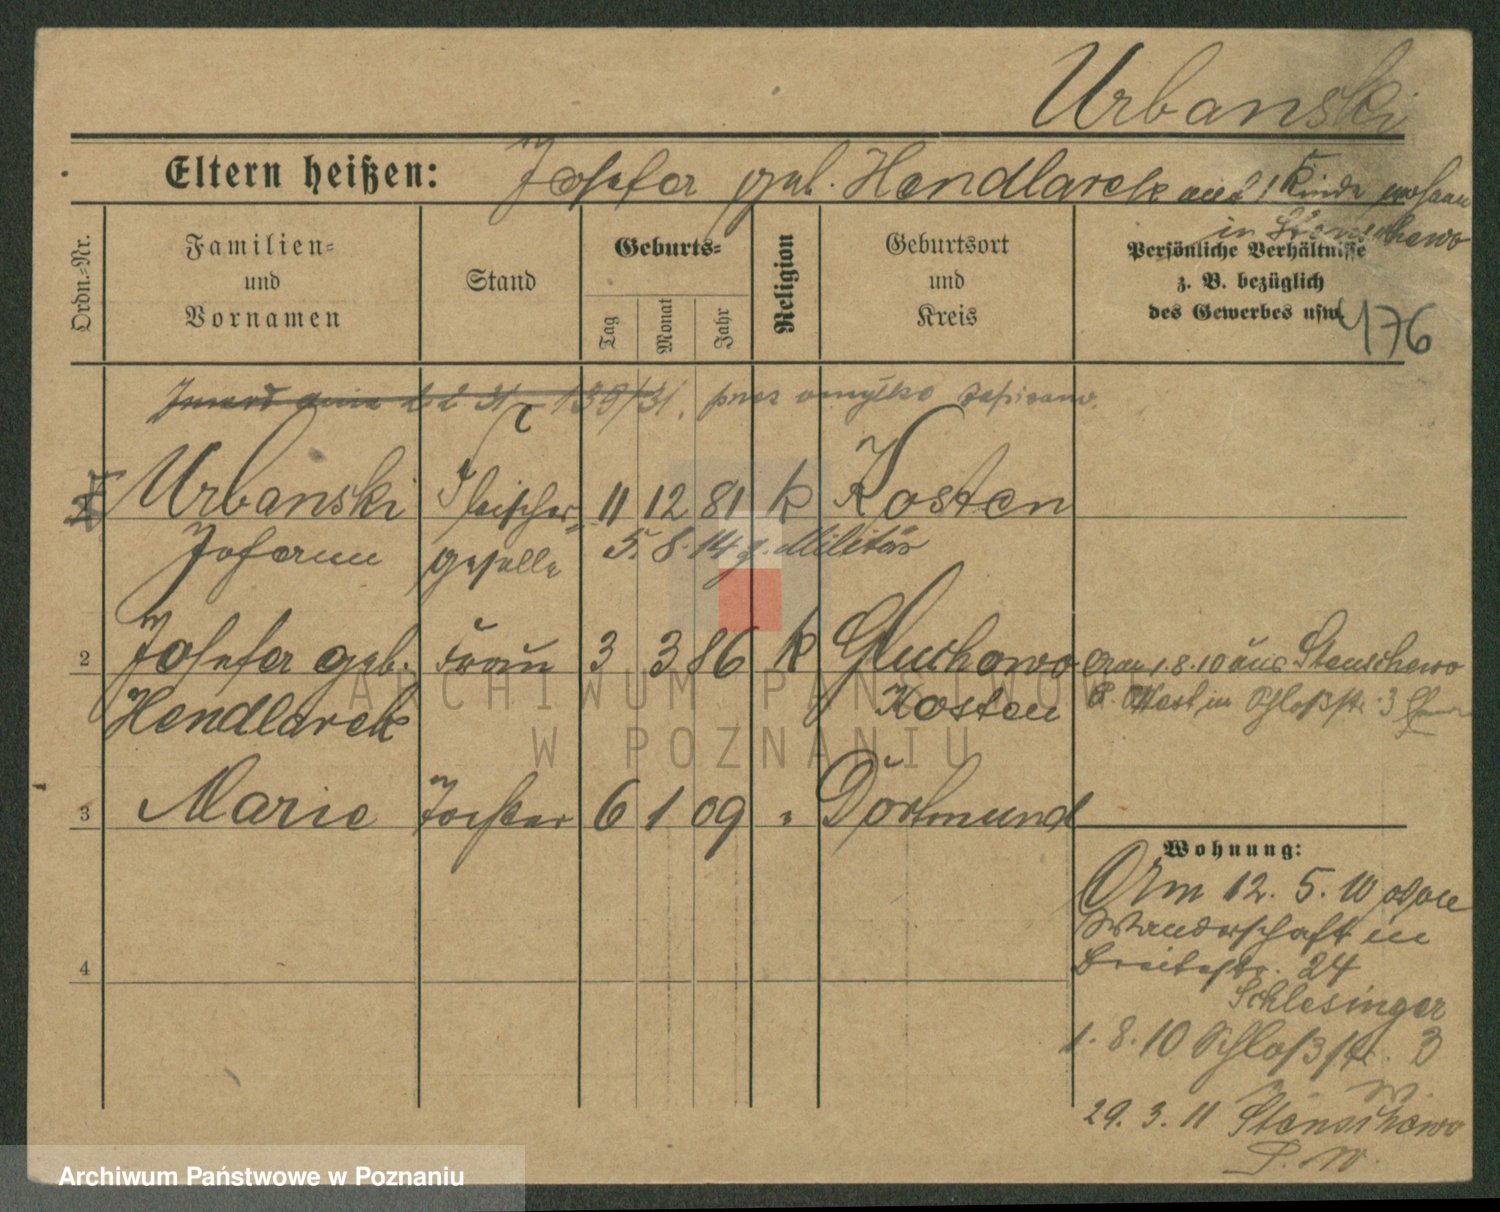 Urbanski
Eltern heißen: Josefa geb. Hendlarek und 1 Kinde
in Stenschewo
Ordn.=Nr.
Familien=
und
Vornamen
Stand
Geburts=
Tag
Monat
Jahr
Religion
Geburtsort
und
Kreis
Persönliche Verhältnisse
z. B. bezüglich
des Gewerbes usw.
476
31 przez omyłkę zapisano.
Urbanski Fleischer= 11 12 81 k Kosten
Johann geselle 5. 8. 14 z. Militär
2 Josefa geb. Frau 3 3 86 k Gluchowo Am 1.8.10 aus Stenschewo
Hendlarek Kosten Schloßstr. 3
3 Marie Tochter 6 1 09 " Dortmund
Wohnung:
Am 12. 5. 10 von
Wanderschaft in
Breitestr. 24
Schlesinger
1. 8. 10 Schloßstr. 3
W.
29. 3. 11 Stenschewo
P. W.
4
ARCHIWUM PAŃSTWOWE
W POZNANIU
Archiwum Państwowe w Poznaniu